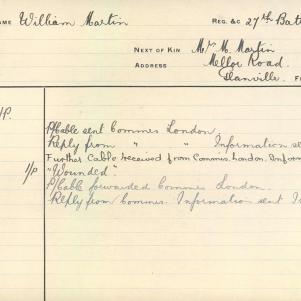 NAME William Martin REG. &C 27th Bat
NEXT OF KIN Mrs M. Martin
ADDRESS Mellor Road.
Glanville.
P/Cable sent Commrs London
Reply from " " Information se
Further Cable received from Commrs. London. Inform
1/p "Wounded".
P/Cable forwarded Commrs London.
Reply from Commrs. Information sent I